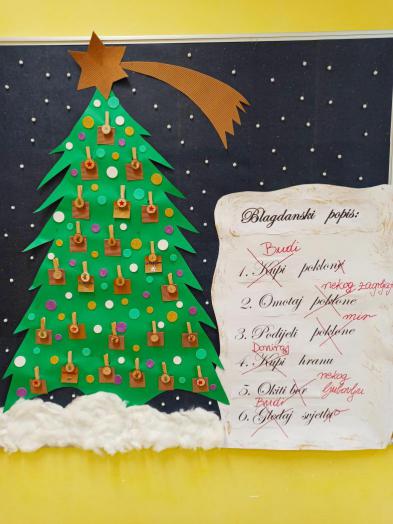 Blagdanski popis:
Budi
1. Kupi poklon
nekog zagrljaj
2. Omotaj poklone
mir
3. Podijeli poklone
Doniraj
4. Kupi hranu
nekog
5. Okiti bor ljubavlju
Budi
6. Gledaj svjetlo